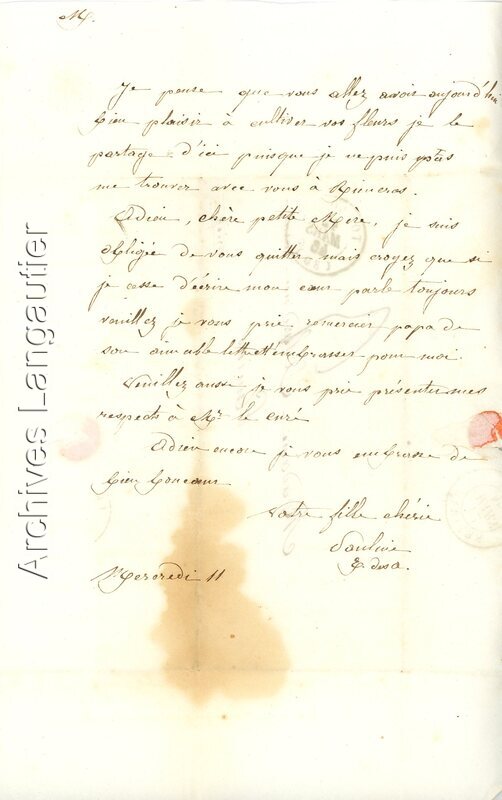 M.
Je pense que vous allez avoir aujourd'hui
bien plaisir à cultiver vos fleurs je le
partage d'ici puisque je ne puis pas
me trouver avec vous à
Adieu, chère petite Mère, je suis
obligée de vous quitter mais croyez que si
je cesse d'écrire mon cœur parle toujours
veuillez je vous prie remercier papa de
son aimable lettre et l'embrasser pour moi.
Veuillez aussi je vous prie présenter mes
respects à Mr le curé
Adieu encore je vous embrasse de
bien bon cœur
Votre fille chérie
Pauline
Mercredi 11
Archives Langautier